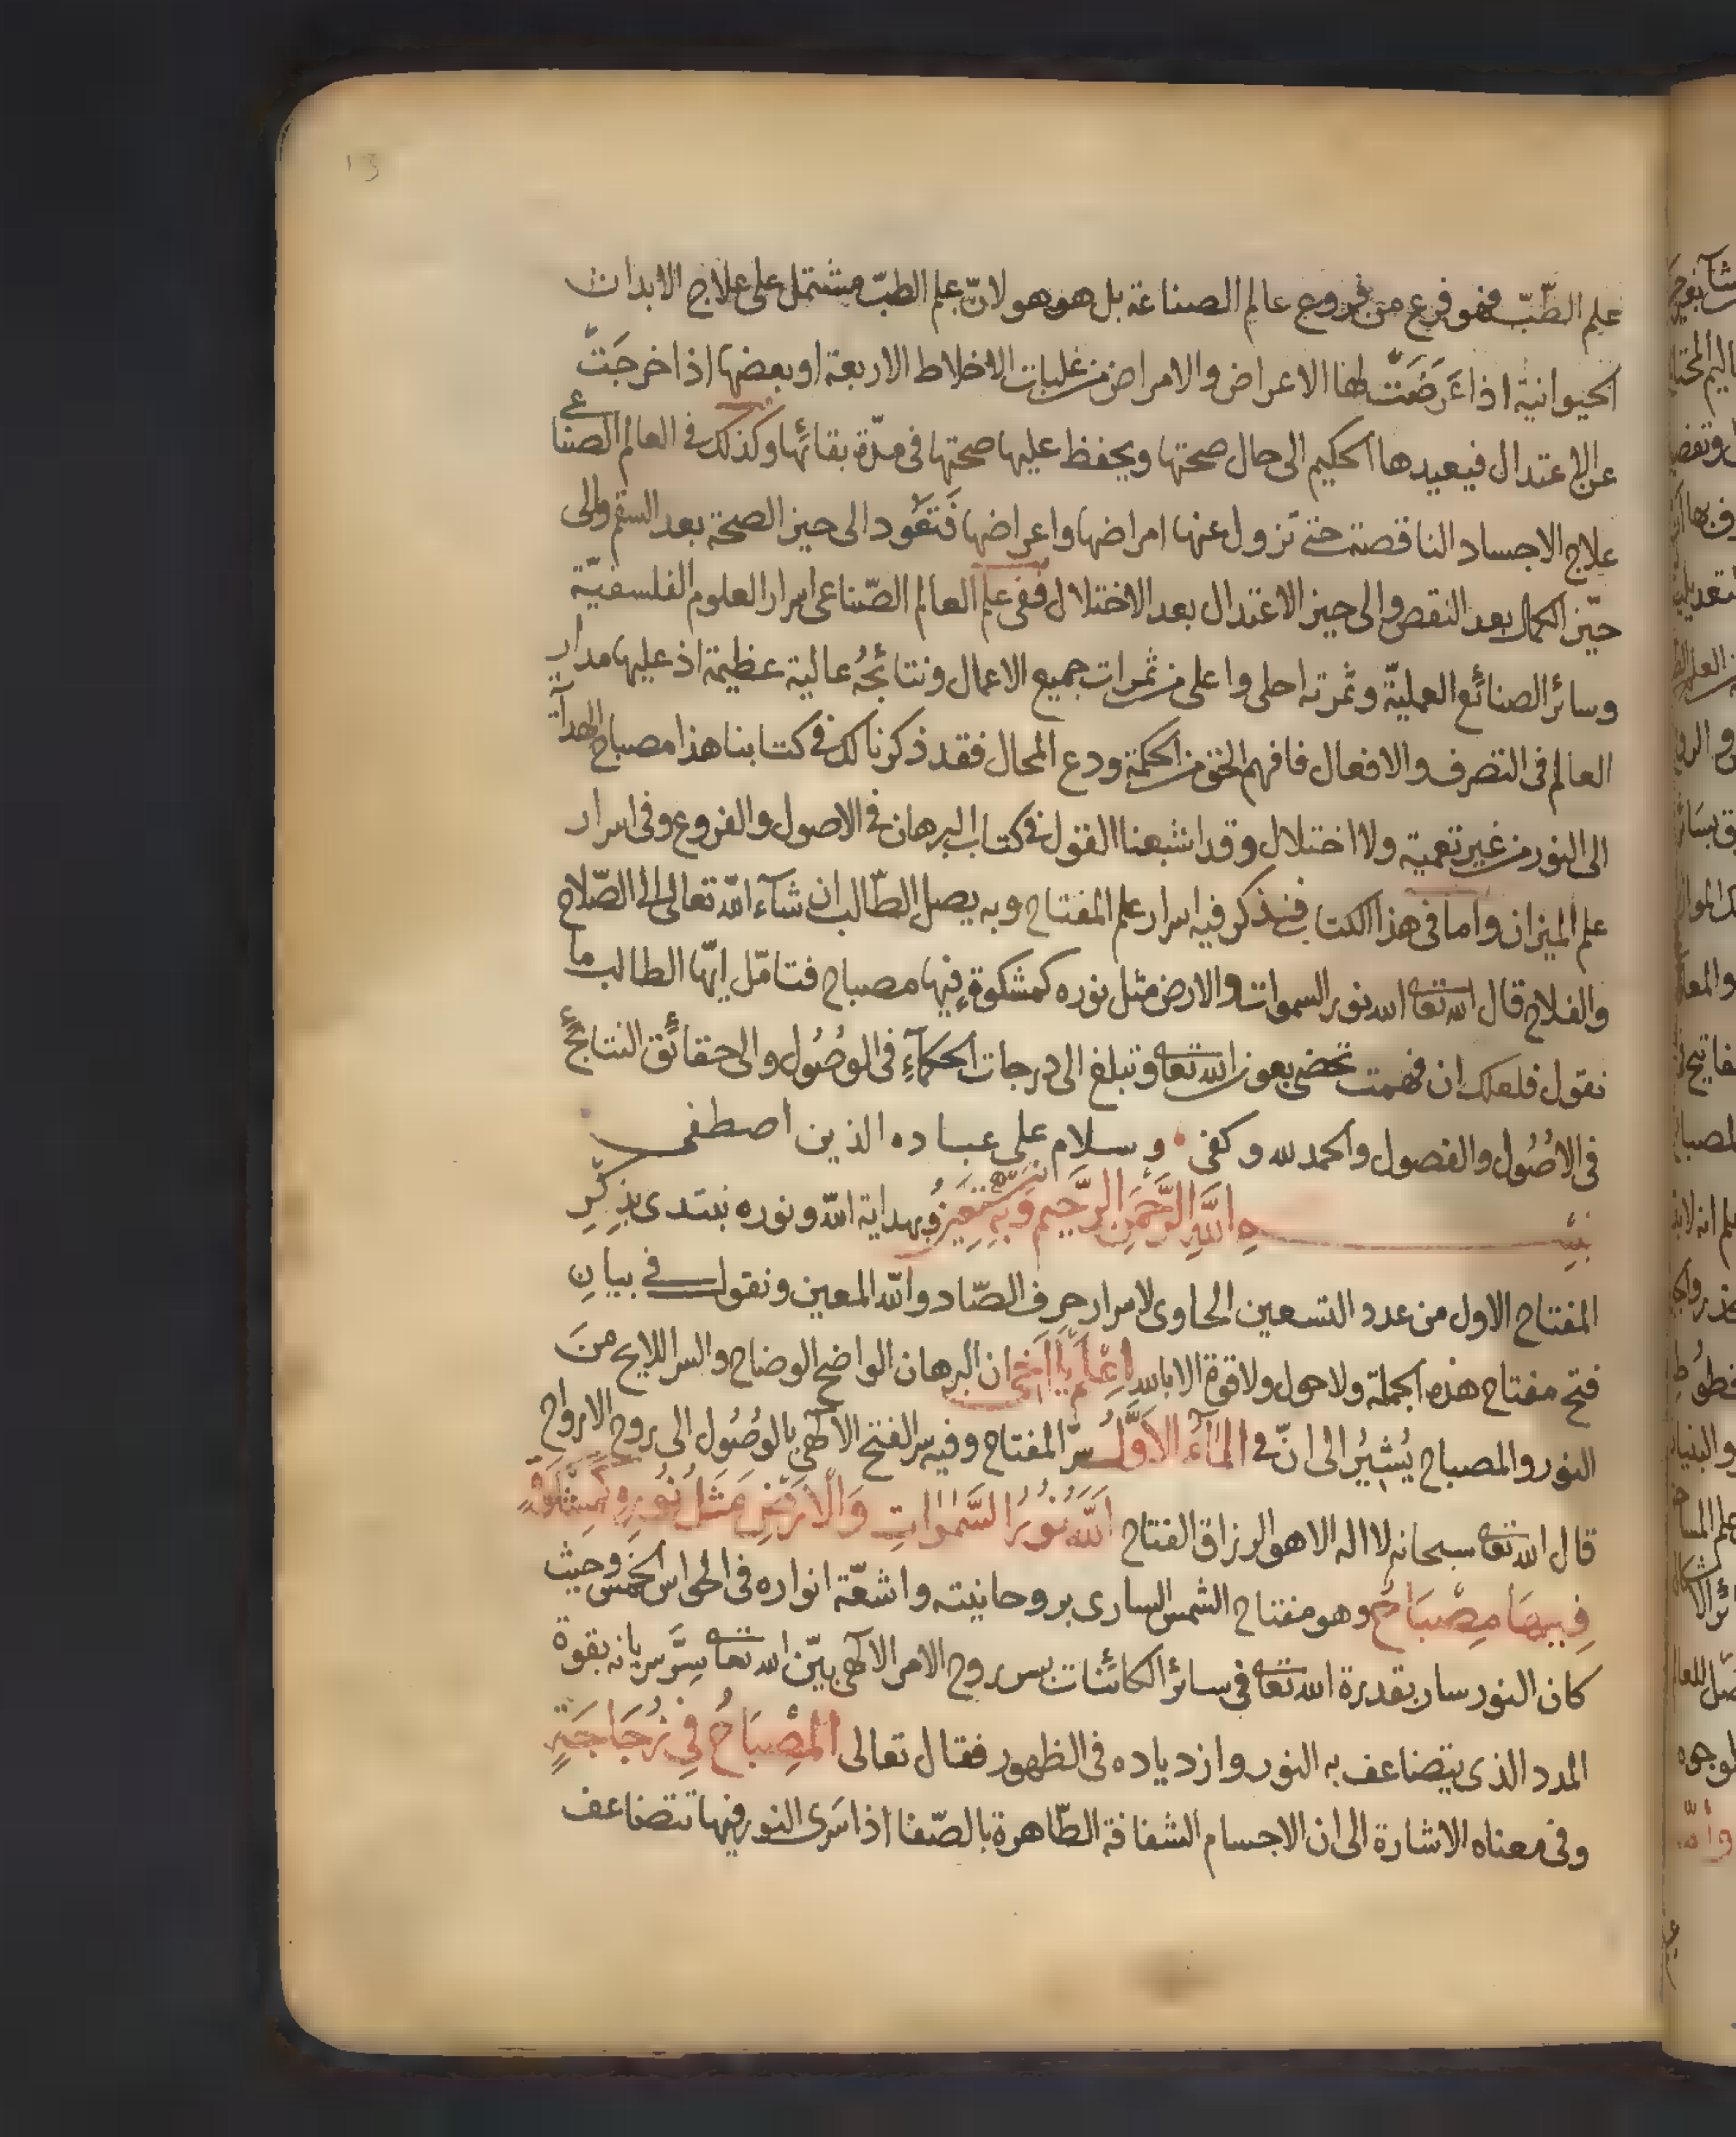 13
علم الطّبّ فهو فرع من فروع عالم الصناعة بل هو هو لانّ علم الطبّ مشتمل على علاج الابدان
الحيوانية اذا عَرَضَتْ لها الاعراض والامراض من غلبات الاخلاط الاربعة او بعضها اذا خرجَتْ
عن الاعتدال فيعيدها الحكيم الى حال صحتها ويحفظ عليها صحتها فى مدّة بقائها وكذلك فى العالم الصناعى
علاج الاجساد الناقصة حتى تزول عنها امراضها واعراضها فَتَعُود الى حيز الصحة بعد السقم والى
حيّز الكمال بعد النقص والى حيز الاعتدال بعد الاختلال ففى علم العالم الصّناعى اسرار العلوم الفلسفيّة
وسائر الصنائع العمليّة وثمرته احلى واعلى من ثمرات جميع الاعمال ونتائجُه عالية عظيمة اذ عليها مدار
العالم فى التصرف والافعال فافهم الحق من الحكمة ودع المحال فقد ذكرنا لك فى كتابنا هذا مصباح الهداية
الى النور من غير تعمية ولا اختلال وقد اشبعنا القول فى كتاب البرهان فى الاصول والفروع وفى اسرار
علم الميزان واما فى هذا الكتاب فنذكر فيه اسرار علم المفتاح وبه يصل الطّالب ان شآء الله تعالى الى الصّلاح
والفلاح قال الله تعا الله نور السموات والارض مثل نوره كمشكوة فيها مصباح فتامّل ايّها الطالب ما
نقول فلعلك ان فهمت تحضى بعون الله تعا وتبلغ الى درجات الحكمآء فى الوصُول والى حقائق النتائج
فى الاصُول والفصول والحمد لله وكفى وسلام على عباده الذين اصطفى
بسم اللهِ الرَّحمنِ الرَّحيمِ وَبِهِ نستعين وبهداية الله ونوره نبتدى بذكرِ
المفتاح الاول من عدد التسعين الحاوى لاسرار حرف الصّاد والله المعين ونقول فى بيانِ
فتح مفتاح هذه الجملة ولا حول ولا قوة الا بالله اعلم يا اخى ان البرهان الواضح الوضاح والسر اللايح منَ
النور والمصباح يُشيرُ الى انّ فى المآء الاوّل سرّ المفتاح وفيه سر الفتح الالهى بالوُصُول الى روح الارواح
قال الله تعا سبحانه لا اله الا هو الرزاق الفتاح اَللهُ نُورُ السَّمٰوَاتِ وَالْاَرْضِ مَثَلُ نُورِهِ كَمِشْكٰوةٍ
فِيهَا مِصْبَاحٌ وهو مفتاح الشمس السارى بروحانيته واشعّة انواره فى الحواس الخمس وحيث
كان النور سار بقدرة الله تعا فى سائر الكائنات بسر روح الامر الالهى بيّن الله تعا سِرَّ سريانه بقوة
المدد الذى يتضاعف به النور وازدياده فى الظهور فقال تعالى الْمِصْبَاحُ فِي زُجَاجَةٍ
وفى معناه الاشارة الى ان الاجسام الشفافة الطّاهرة بالصّفا اذا سَرى النور فيها تتضاعف